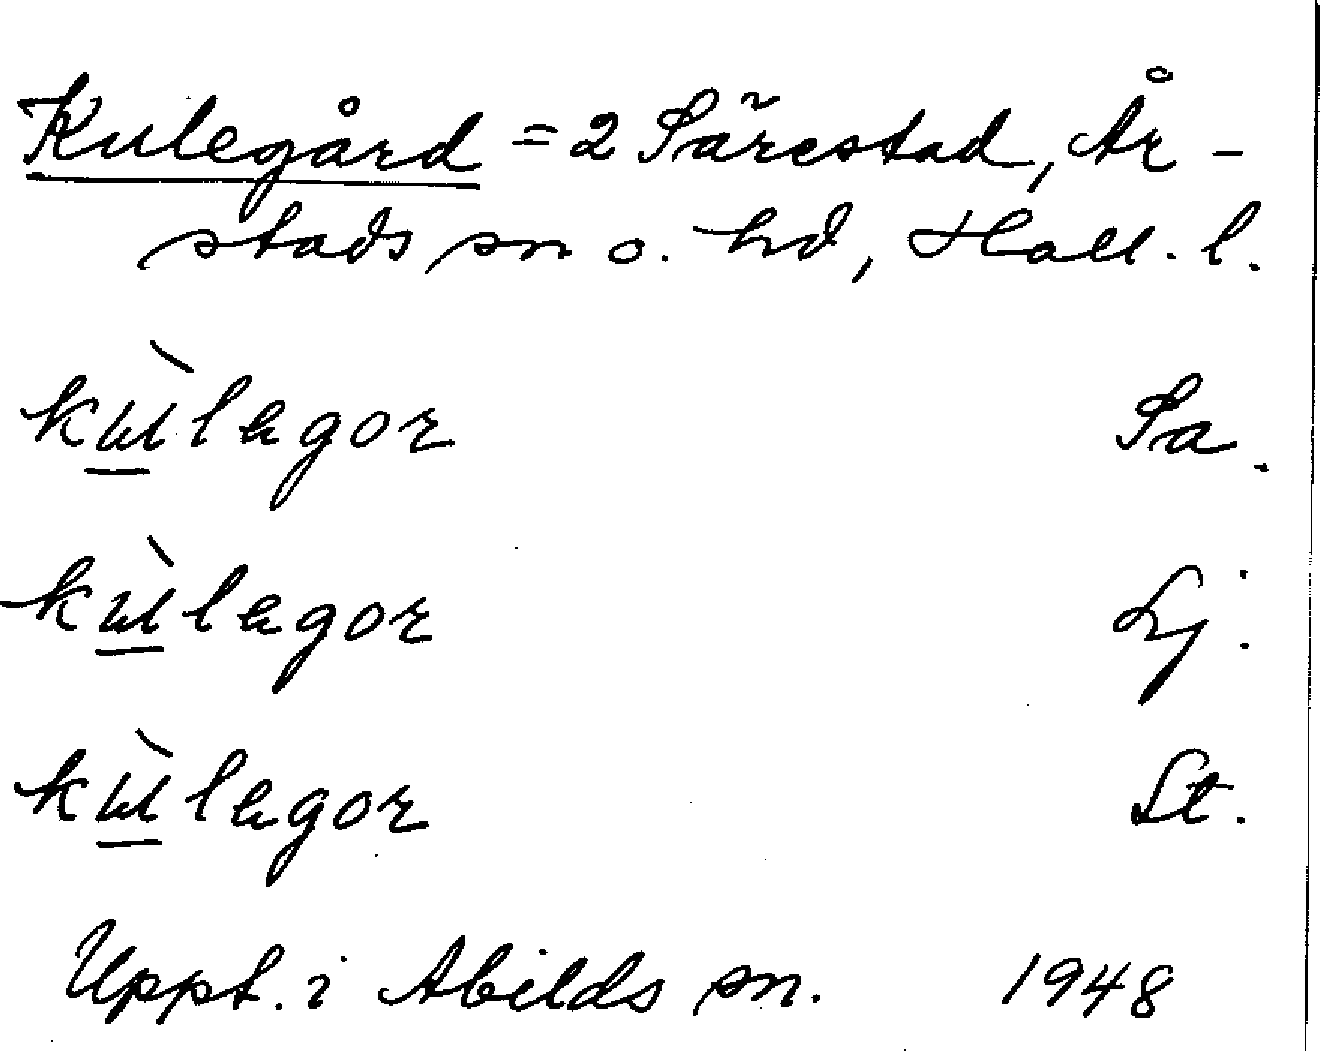 Kulegård = 2 Särestad, År-
stads sn o. hd, Hall. l.
kùlagor Sa.
kùlagor Lj.
kùlagor St.
Uppt. i Abilds sn. 1948